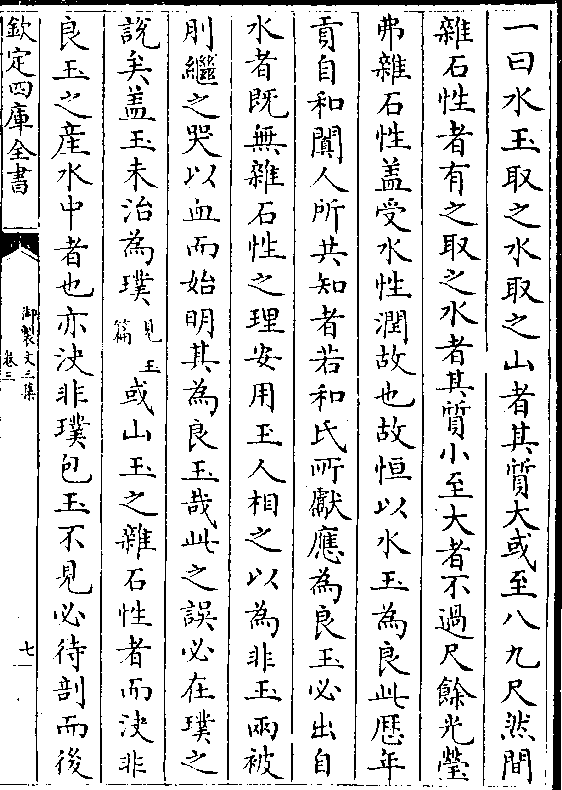 一曰水玉取之水取之山者其質大或至八九尺然間
雜石性者有之取之水者其質小至大者不過尺餘光瑩
弗雜石性盖受水性潤故也故恒以水玉為良此歴年
貢自和闐人所共知者若和氏所獻應為良玉必出自
水者既無雜石性之理安用玉人相之以為非玉兩被
刖繼之哭以血而始明其為良玉哉此之誤必在璞之
說矣盖玉未治為璞見玉篇或山玉之雜石性者而決非
良玉之産水中者也亦決非璞包玉不見必待剖而後
欽定四庫全書
御製文三集
卷三
七